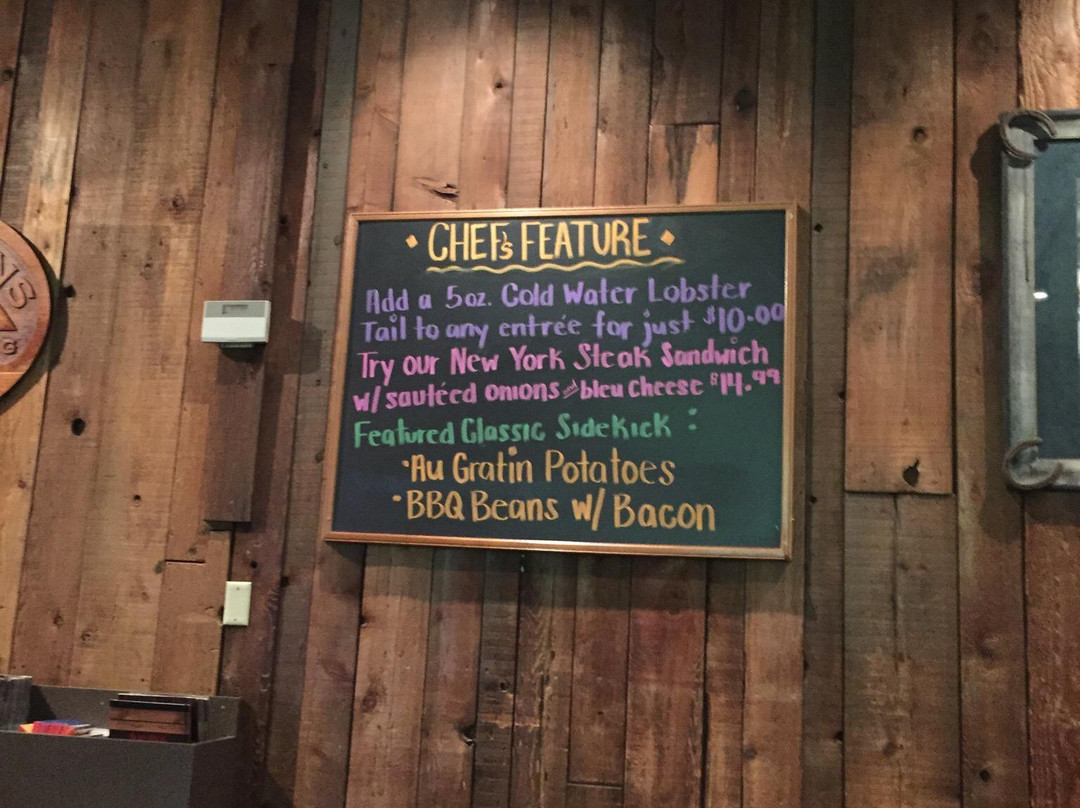 • CHEF's FEATURE •
Add a 5oz. Cold Water Lobster
Tail to any entrée for just $10.00
Try our New York Steak Sandwich
w/ sautéed onions and bleu cheese $14.99
Featured Classic Sidekick :
•Au Gratin Potatoes
•BBQ Beans w/ Bacon